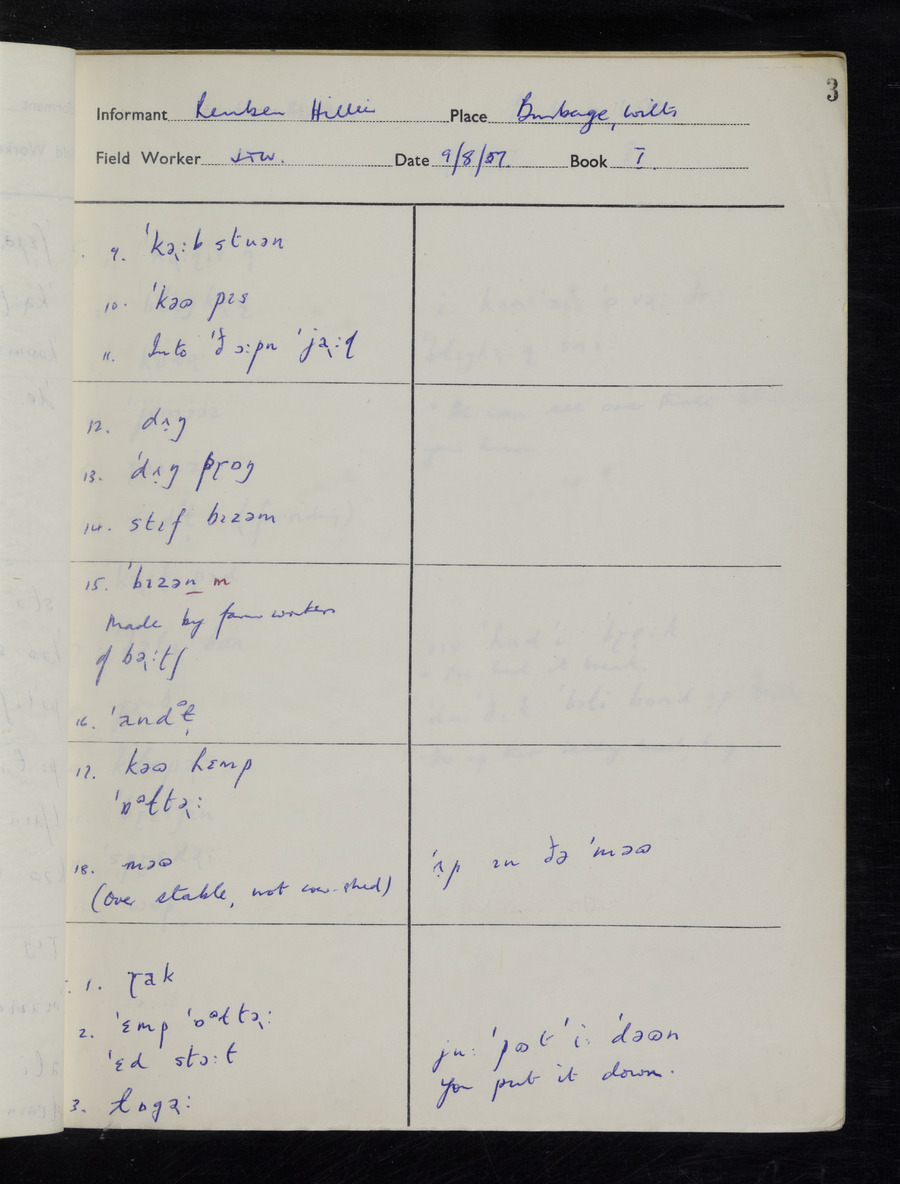 3
Informant Reuben Hillier Place Burbage, Wilts
Field Worker Date 9/8/57. Book I.
9. ˈkəɽːb stuən
10. ˈkəʊ pɪs
11. Into ˈð ɔːpn ˈjəɽːd
12. dʌŋ
13. ˈdʌŋ prɒŋ
14. stɪf bɪzəm
15. ˈbɪzən m
Made by farm workers
of bəɽːtʃ
16. ˈandᵊɫ
17. kəʊ hɛmp
ˈɒᵊɫtəɽː
18. məʊ
(Over stable, not cow-shed)
ˈʌp ɪn ðə ˈməʊ
1. ɽak
2. ˈɛmp ˈɒᵊɫtəɽː
ˈɛd stɔːt
juː ˈpʊt ˈiː ˈdəʊn
you put it down.
3. tɒgəː